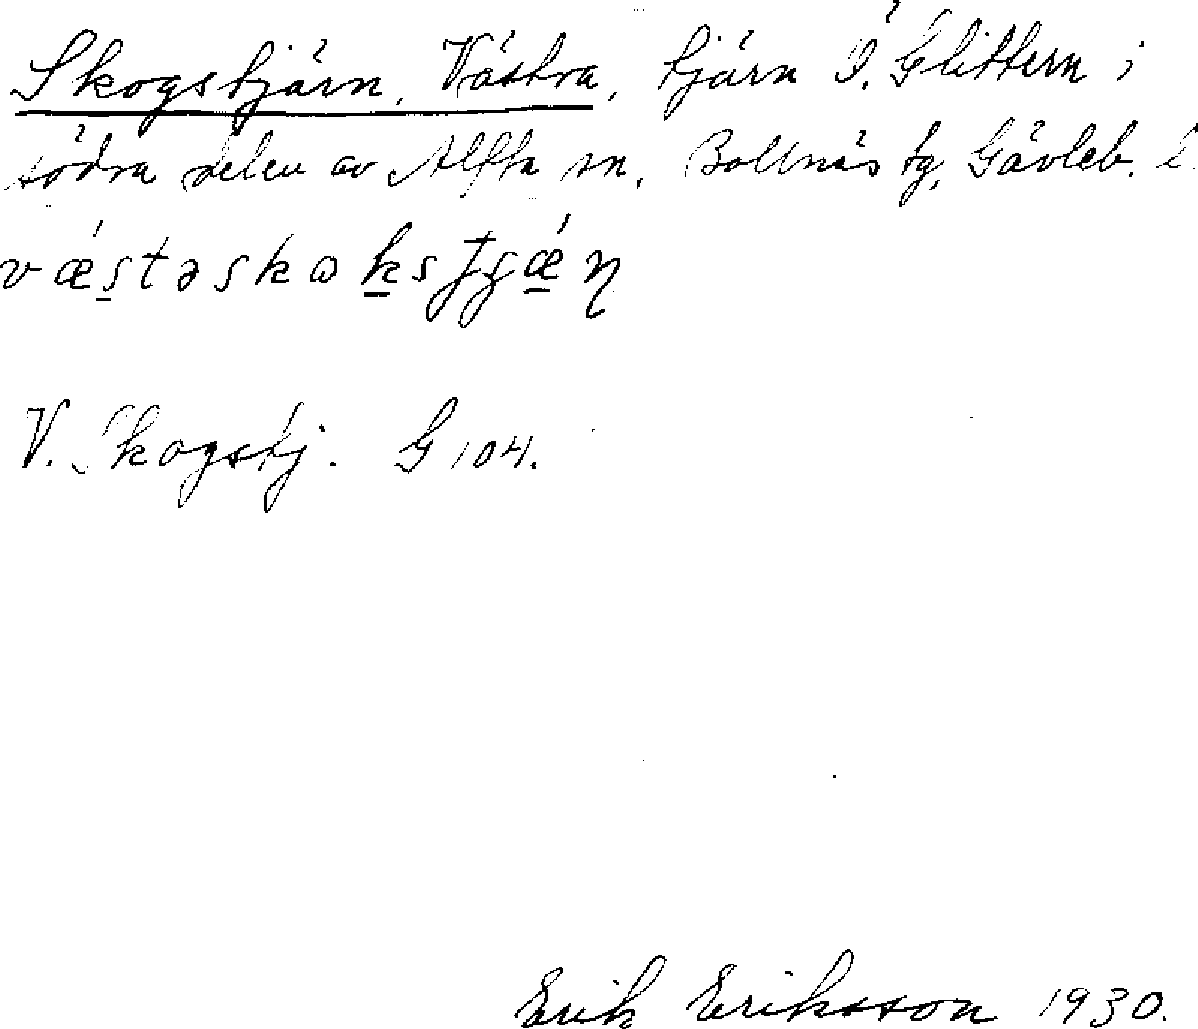 Skogstjärn, Västra, tjärn Ö. Glittern i
södra delen av Alfta sn, Bollnäs tg, Gävleb. l.
væ´s̲təskɷk̲sʄɡæ̲´η
V. Skogstj. G 104.
Erik Eriksson 1930.